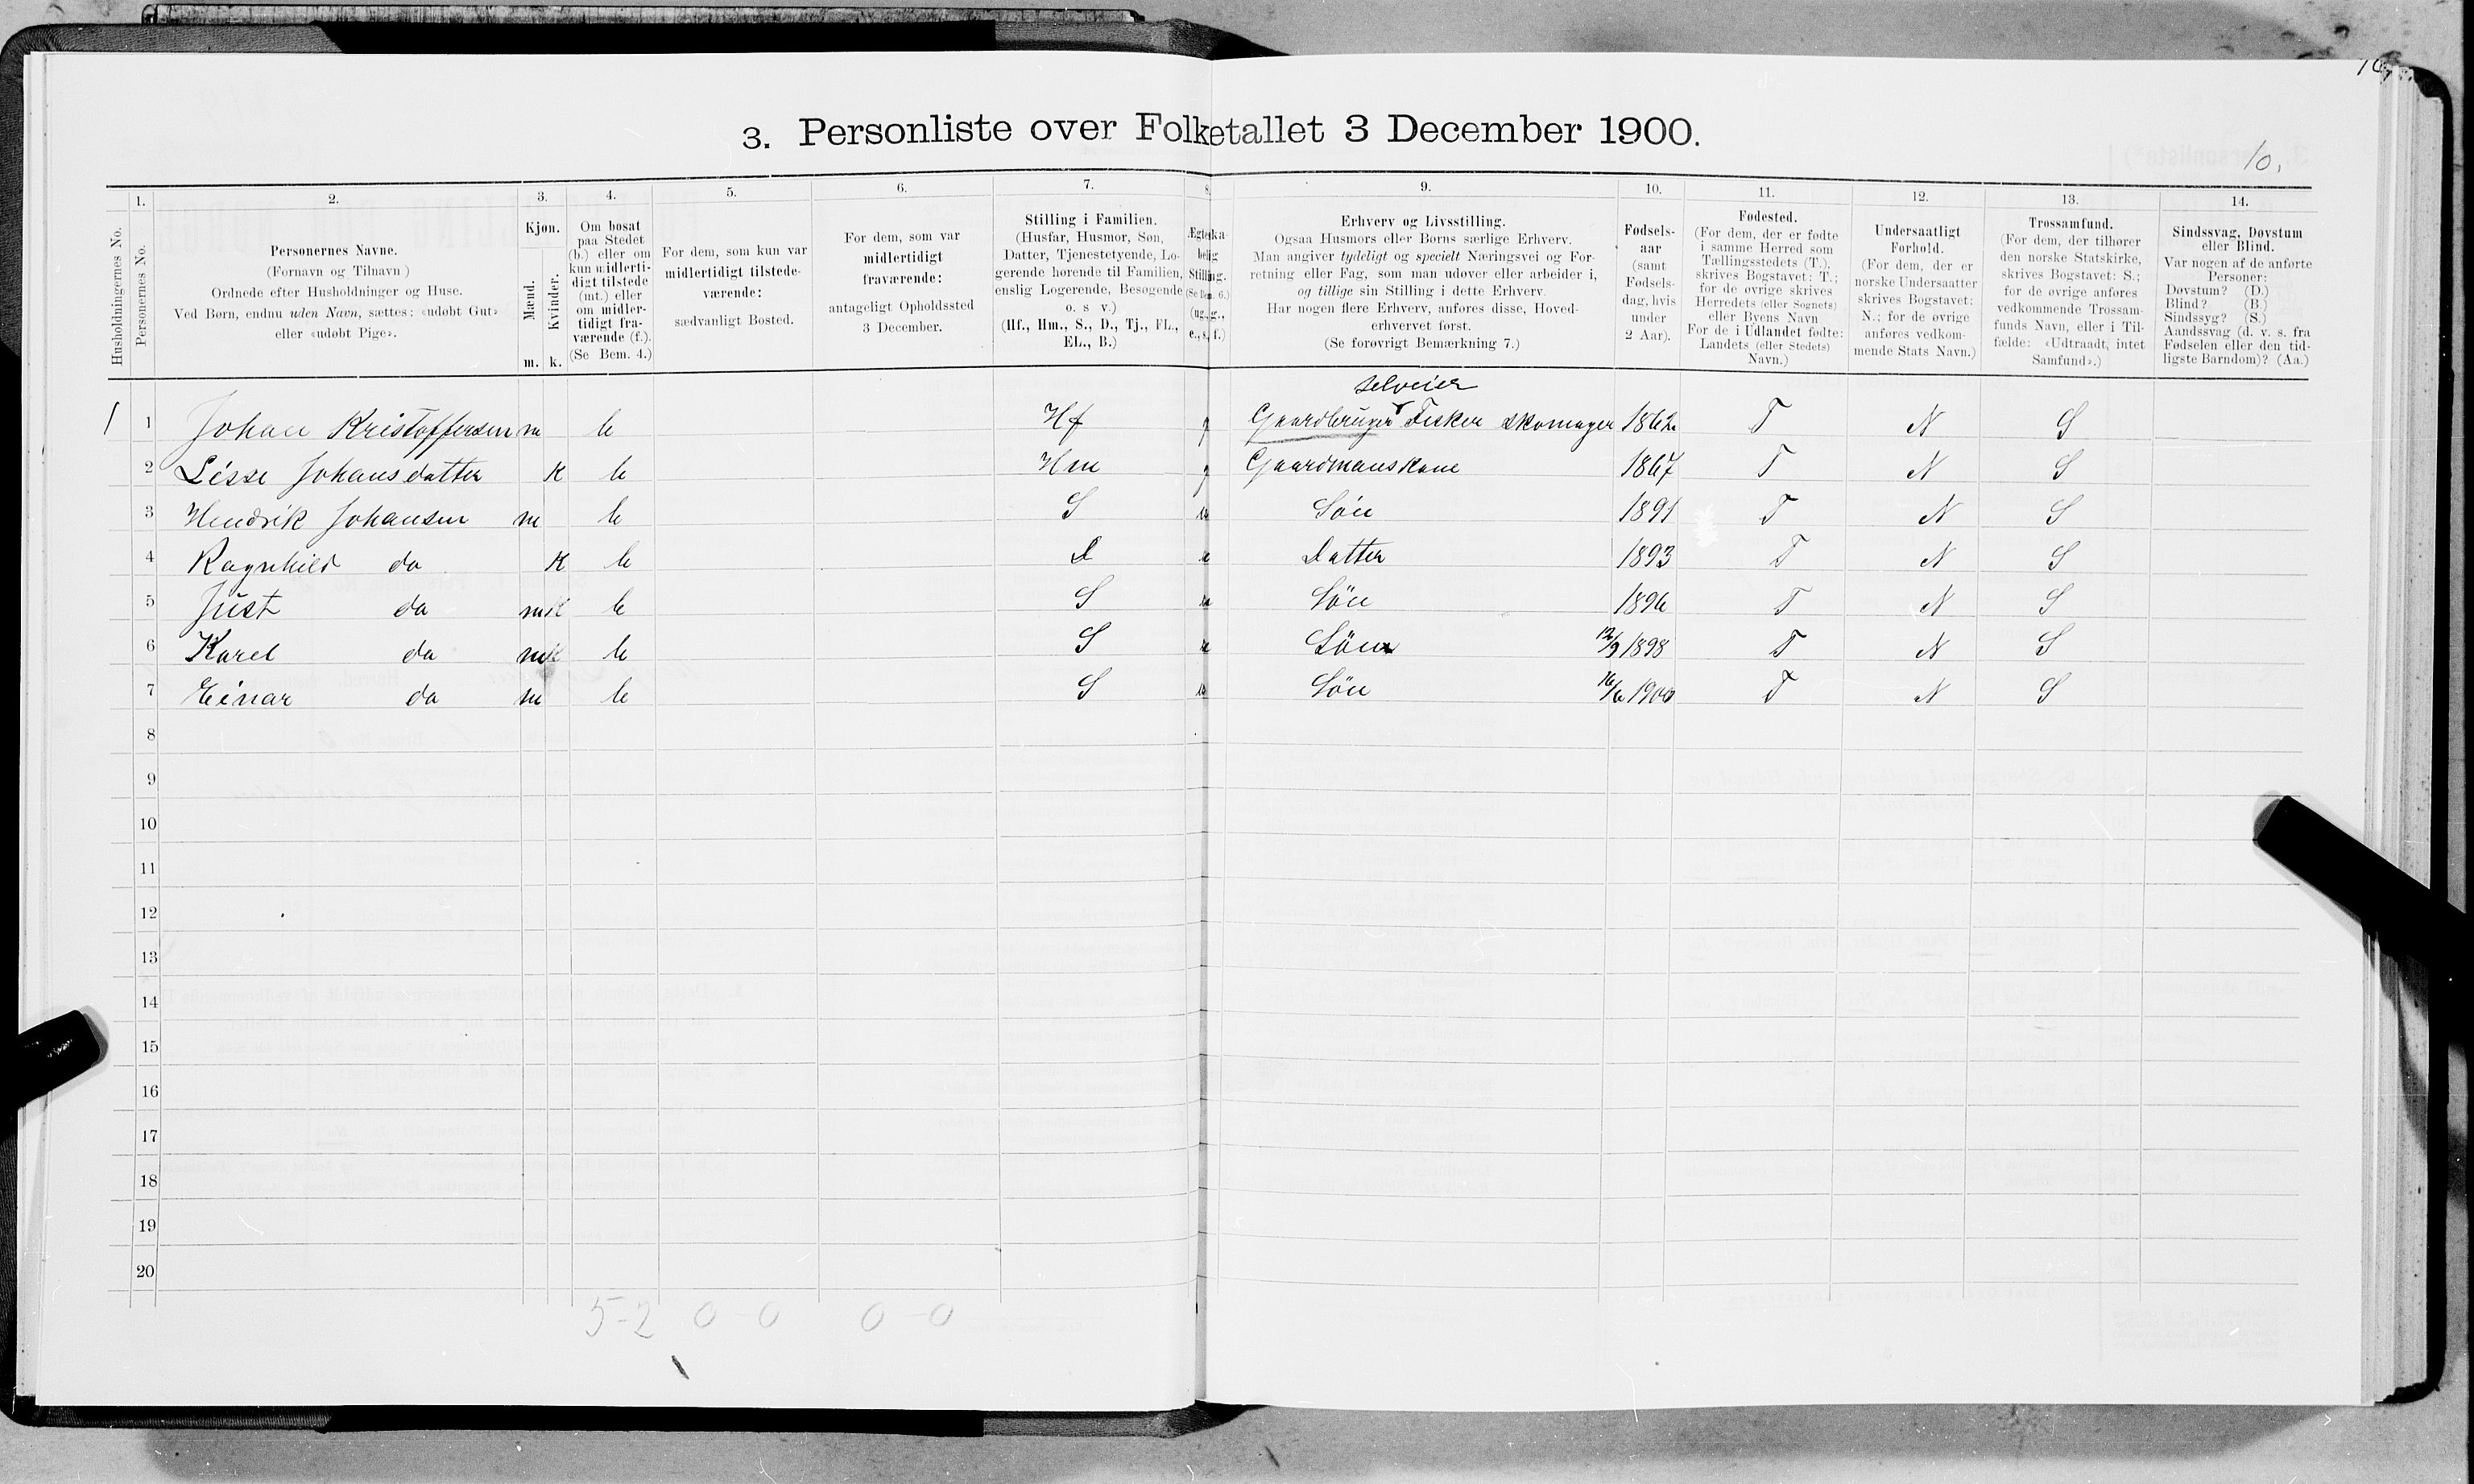 10,
3. Personliste over Folketallet 3 December 1900.
1. 2. 3. 4. 5. 6. 7. 8. 9. 10. 11. 12. 13. 14.
Husholdningernes No.
Personernes No.
Personernes Navne.
(Fornavn og Tilnavn )
Ordnede efter Husholdninger og Huse.
Ved Børn, endnu uden Navn, sættes: «udøbt Gut»
eller «udøbt Pige».
Kjøn.
Mænd.
Kvinder.
m. k.
Om bosat
paa Stedet
(b.) eller om
kun midlerti-
digt tilstede
(mt.) eller
om midler-
tidigt fra-
værende (f.).
(Se Bem. 4.)
For dem, som kun var
midlertidigt tilstede-
værende:
sædvanligt Bosted.
For dem, som var
midlertidigt
fraværende:
antageligt Opholdssted
3 December.
Stilling i Familien.
(Husfar, Husmor, Søn,
Datter, Tjenestetyende, Lo-
gerende hørende til Familien,
enslig Logerende, Besøgende
o. s v.)
(Hf., Hm., S., D., Tj., FL.,
EL., B.)
Ægteska-
belig
Stilling.
(Se Bem. 6.)
(ug., g.,
e., s., f.)
Erhverv og Livsstilling.
Ogsaa Husmors eller Børns særlige Erhverv.
Man angiver tydeligt og specielt Næringsvei og For-
retning eller Fag, som man udøver eller arbeider i,
og tillige sin Stilling i dette Erhverv.
Har nogen flere Erhverv, anføres disse, Hoved-
erhvervet først.
(Se forøvrigt Bemærkning 7.)
Fødsels-
aar
(samt
Fødsels-
dag, hvis
under
2 Aar).
Fødested.
(For dem, der er fødte
i samme Herred som
Tællingsstedets (T.),
skrives Bogstavet: T.;
for de øvrige skrives
Herredets (eller Sognets)
eller Byens Navn
For de i Udlandet fødte:
Landets (eller Stedets)
Navn.)
Undersaatligt
Forhold.
(For dem, der er
norske Undersaatter
skrives Bogstavet:
N.; for de øvrige
anføres vedkom-
mende Stats Navn.)
Trossamfund.
(For dem, der tilhører
den norske Statskirke,
skrives Bogstavet: S.;
for de øvrige anføres
vedkommende Trossam-
funds Navn, eller i Til-
fælde: «Udtraadt, intet
Samfund».)
Sindssvag, Døvstum
eller Blind.
Var nogen af de anførte
Personer:
Døvstum? (D.)
Blind? (B.)
Sindssyg? (S.)
Aandssvag (d. v. s. fra
Fødselen eller den tid-
ligste Barndom)? (Aa.)
selveier
1 1 Johan Kristoffersen m b Hf g Gaardbruger Fisker skomager 1862 T N S
2 Lisse Johansdatter k b Hm g Gaardmanskone 1867 T N S
3 Hendrik Johansen m b S u Søn 1891 T N S
4 Ragnhild do k b D u Datter 1893 T N S
5 Just do m b S u Søn 1896 T N S
6 Karel do m b S u Søn 12/9 1898 T N S
7 Einar do m b S u Søn 16/6 1900 T N S
8
9
10
11
12
13
14
15
16
17
18
19
20
5-2 0-0 0-0